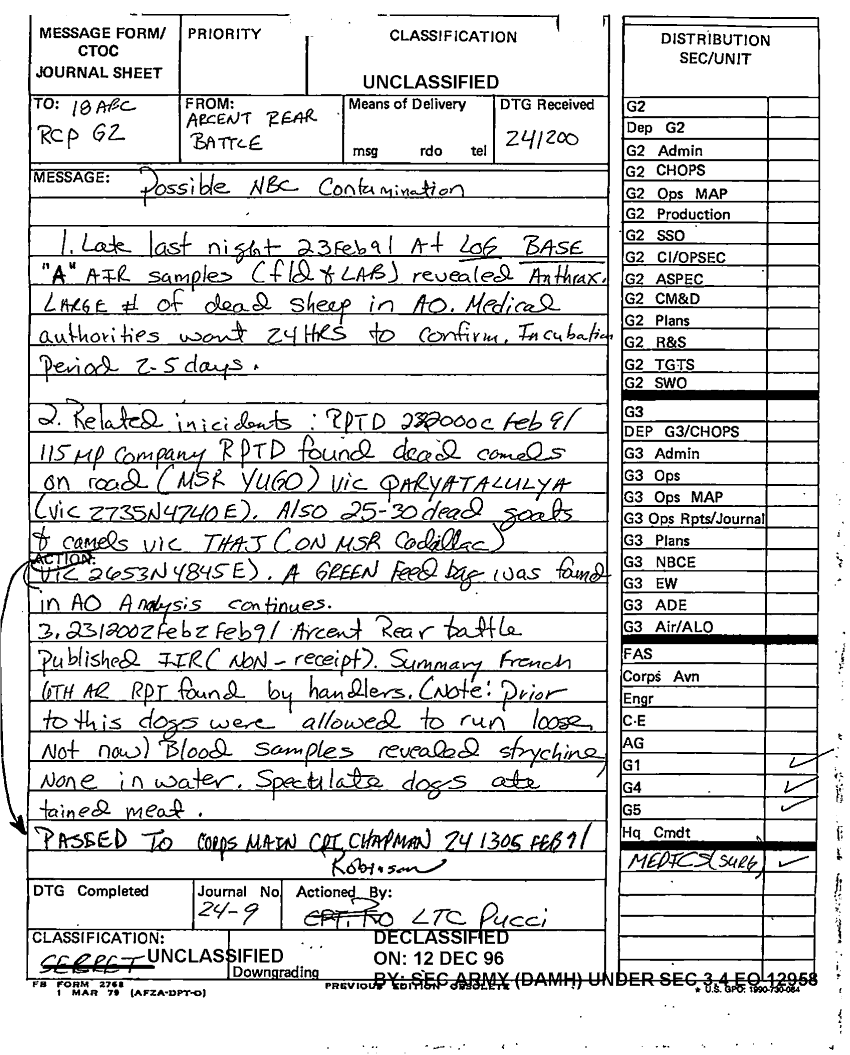 MESSAGE FORM/
CTOC
JOURNAL SHEET
PRIORITY
CLASSIFICATION
UNCLASSIFIED
TO: 18 ABC
RCP G2
FROM:
ARCENT REAR
BATTLE
Means of Delivery
msg rdo tel
DTG Received
241200
MESSAGE: Possible NBC Contamination
1. Late last night 23Feb91 At LOG BASE
"A" AIR samples (fld & LAB) revealed Anthrax.
LARGE # of dead sheep in AO. Medical
authorities want 24HRS to confirm. Incubation
Period 2-5 days.
2. Related inicidents : RPTD 232000C Feb 91
115 MP Company RPTD found dead camels
on road (MSR YUGO) vic QARYATALULYA
(vic 2735N4740E). Also 25-30 dead goats
& camels vic THAJ (ON MSR Cadillac)
ACTION:
(vic 2653N4845E). A GREEN Feed bag was found
in AO Analysis continues.
3. 231200ZFebz Feb91 Arcent Rear battle
Published IIR (NON-receipt). Summary French
6TH AR RPT found by handlers. (Note: Prior
to this dogs were allowed to run loose,
Not now) Blood samples revealed strychine,
None in water. Speculate dogs ate
tained meat.
PASSED TO CORPS MAIN CPT CHAPMAN 24 1305 FEB 91
Robinson
DTG Completed
Journal No
24-9
Actioned By:
LTC Pucci
CLASSIFICATION:
SECRET UNCLASSIFIED
Downgrading
DECLASSIFIED
ON: 12 DEC 96
BY: SEC ARMY (DAMH) UNDER SEC 3.4 EO 12958
FB FORM 2768
1 MAR 79 (AFZA-DPT-O)
PREVIOUS EDITION OBSOLETE
* U.S. GPO: 1990-730-084
DISTRIBUTION
SEC/UNIT
G2
Dep G2
G2 Admin
G2 CHOPS
G2 Ops MAP
G2 Production
G2 SSO
G2 CI/OPSEC
G2 ASPEC
G2 CM&D
G2 Plans
G2 R&S
G2 TGTS
G2 SWO
G3
DEP G3/CHOPS
G3 Admin
G3 Ops
G3 Ops MAP
G3 Ops Rpts/Journal
G3 Plans
G3 NBCE
G3 EW
G3 ADE
G3 Air/ALO
FAS
Corps Avn
Engr
C-E
AG
G1
G4
G5
Hq Cmdt
MEDICS (SURG)